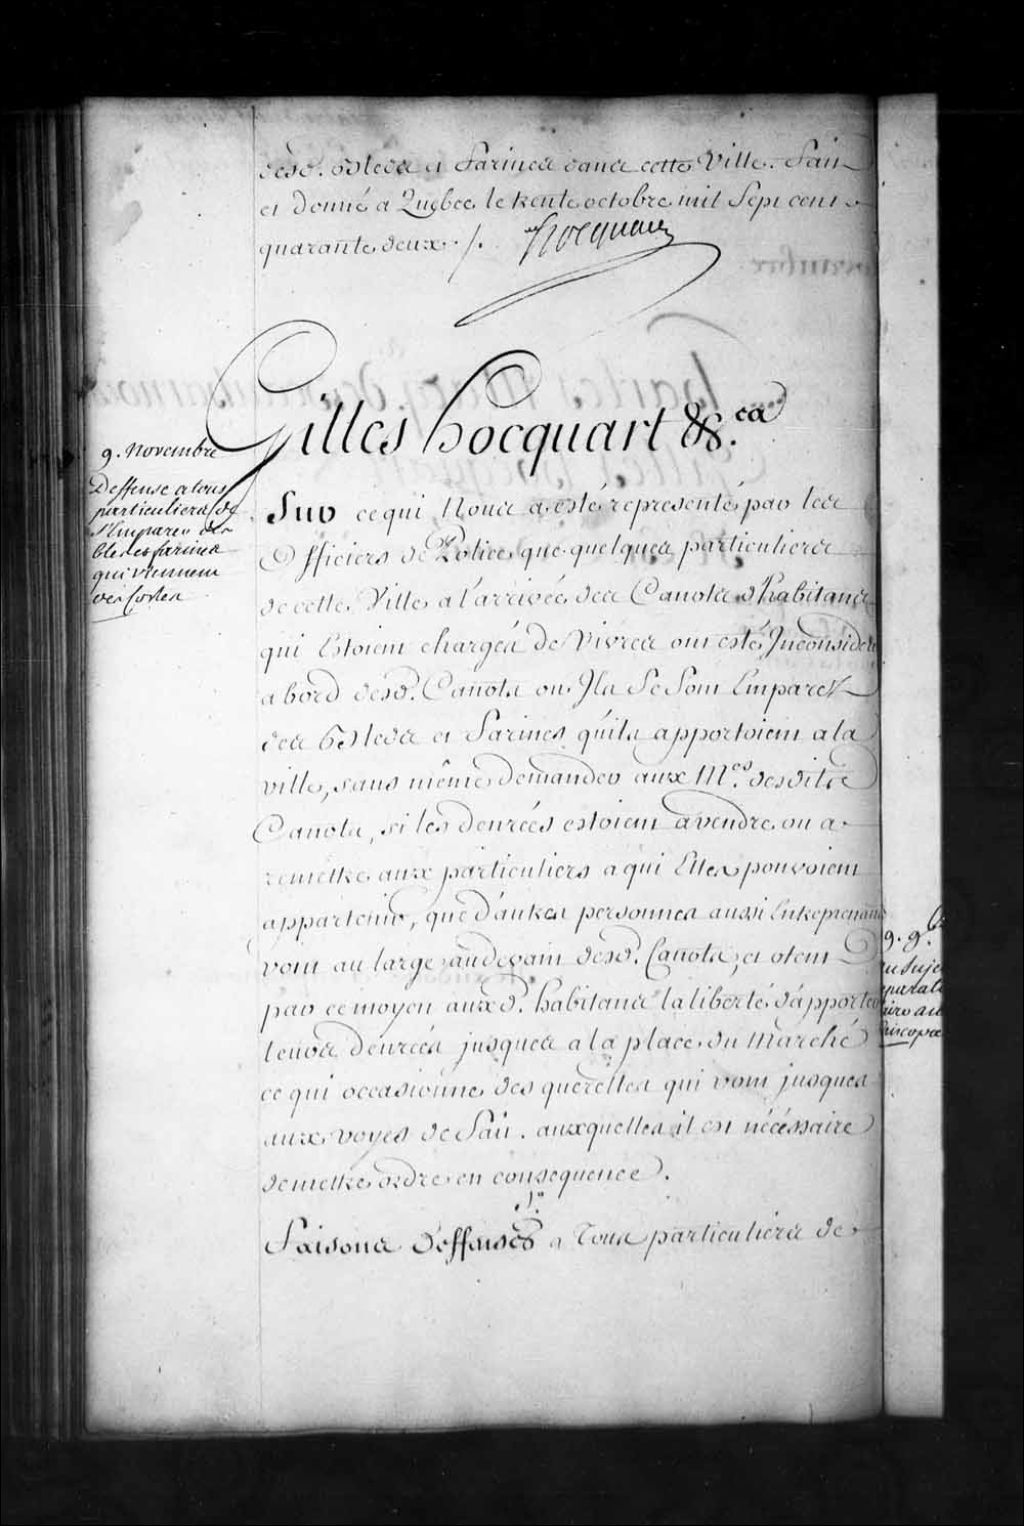 desd. Bleds et farines dans cette Ville. Fait
et Donné a Quebec le trente octobre mil Sept cent
quarante deux ./. Hocquart
Gilles hocquart &c.ca
9. Novembre
Deffense a tous
particuliers de
s'Emparer des
bleds et farines
qui viennent
des Costes
Sur ce qui Nous a esté representé par les
Officiers de Police que quelques particuliers
de cette Ville a l'arrivée des Canots d'habitans
qui Estoient chargés de Vivres ont esté Inconsider
a bord desd. Canots ou Ils Se Sont Emparez
des Bleds et farines qu'ils apportoient a la
ville, sans même demander aux M.es desdits
Canots, si les denrées estoient a vendre ou a
remettre aux particuliers a qui Elles pouvoient
appartenir, que d'autres personnes aussi Entreprenans
vont au large audevant desd. Canots, et otent
par ce moyen auxd. habitans la liberté d'apporter
leurs denrées jusques a la place du Marché
ce qui occasionne des querelles qui vont jusques
aux voyes de fait. auxquelles il est nécéssaire
de mettre ordre en consequence.
1.º
Faisons deffenses a Tous particuliers de
9. 9.b
au Suje